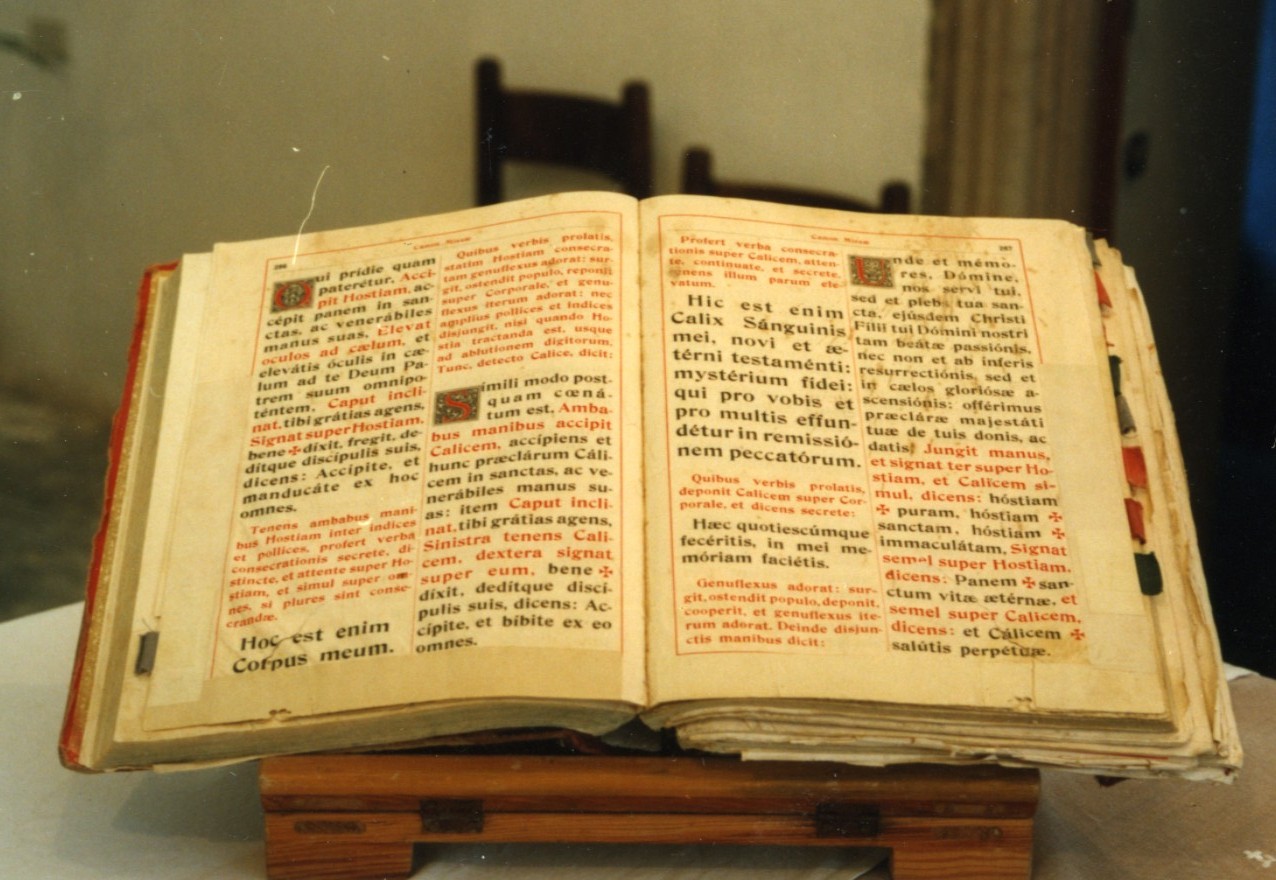 Canon Missæ
266
Qui pridie quam
paterétur, Acci-
pit Hostiam, ac-
cépit panem in san-
ctas, ac venerábiles
manus suas, Elevat
oculos ad cælum, et
elevátis óculis in cæ-
lum ad te Deum Pa-
trem suum omnipo-
téntem, Caput incli-
nat, tibi grátias agens,
Signat super Hostiam,
bene ✠ dixit, fregit, de-
ditque discípulis suis,
dicens: Accípite, et
manducáte ex hoc
omnes.
Tenens ambabus mani-
bus Hostiam inter indices
et pollices, profert verba
consecrationis secrete, di-
stincte, et attente super Ho-
stiam, et simul super om-
nes, si plures sint conse-
crandæ.
Hoc est enim
Corpus meum.
Quibus verbis prolatis,
statim Hostiam consecra-
tam genuflexus adorat: sur-
git, ostendit populo, reponit
super Corporale, et genu-
flexus iterum adorat: nec
amplius pollices et indices
disjungit, nisi quando Ho-
stia tractanda est, usque
ad ablutionem digitorum.
Tunc, detecto Calice, dicit:
Simili modo post-
quam cœná-
tum est, Amba-
bus manibus accipit
Calicem, accípiens et
hunc præclárum Cáli-
cem in sanctas, ac ve-
nerábiles manus su-
as: item Caput incli-
nat, tibi grátias agens,
Sinistra tenens Cali-
cem, dextera signat
super eum, bene ✠
dixit, dedítque discí-
pulis suis, dicens: Ac-
cípite, et bíbite ex eo
omnes.
Canon Missæ
267
Profert verba consecra-
tionis super Calicem, atten-
te, continuate, et secrete,
tenens illum parum ele-
vatum.
Hic est enim
Calix Sánguinis
mei, novi et æ-
térni testaménti:
mystérium fídei:
qui pro vobis et
pro multis effun-
détur in remissió-
nem peccatórum.
Quibus verbis prolatis,
deponit Calicem super Cor-
porale, et dicens secrete:
Hæc quotiescúmque
fecéritis, in mei me-
móriam faciétis.
Genuflexus adorat: sur-
git, ostendit populo, deponit,
cooperit, et genuflexus ite-
rum adorat. Deinde disjun-
ctis manibus dicit:
Unde et mémo-
res, Dómine,
nos servi tui,
sed et plebs tua san-
cta, ejúsdem Christi
Fílii tui Dómini nostri
tam beátæ passiónis,
nec non et ab ínferis
resurrectiónis, sed et
in cælos gloriósæ a-
scensiónis: offérimus
præcláræ majestáti
tuæ de tuis donis, ac
datis, Jungit manus,
et signat ter super Ho-
stiam, et Calicem si-
mul, dicens: hóstiam
✠ puram, hóstiam ✠
sanctam, hóstiam ✠
immaculátam, Signat
semel super Hostiam,
dicens: Panem ✠ san-
ctum vitæ ætérnæ, et
semel super Calicem,
dicens: et Cálicem ✠
salútis perpétuæ.